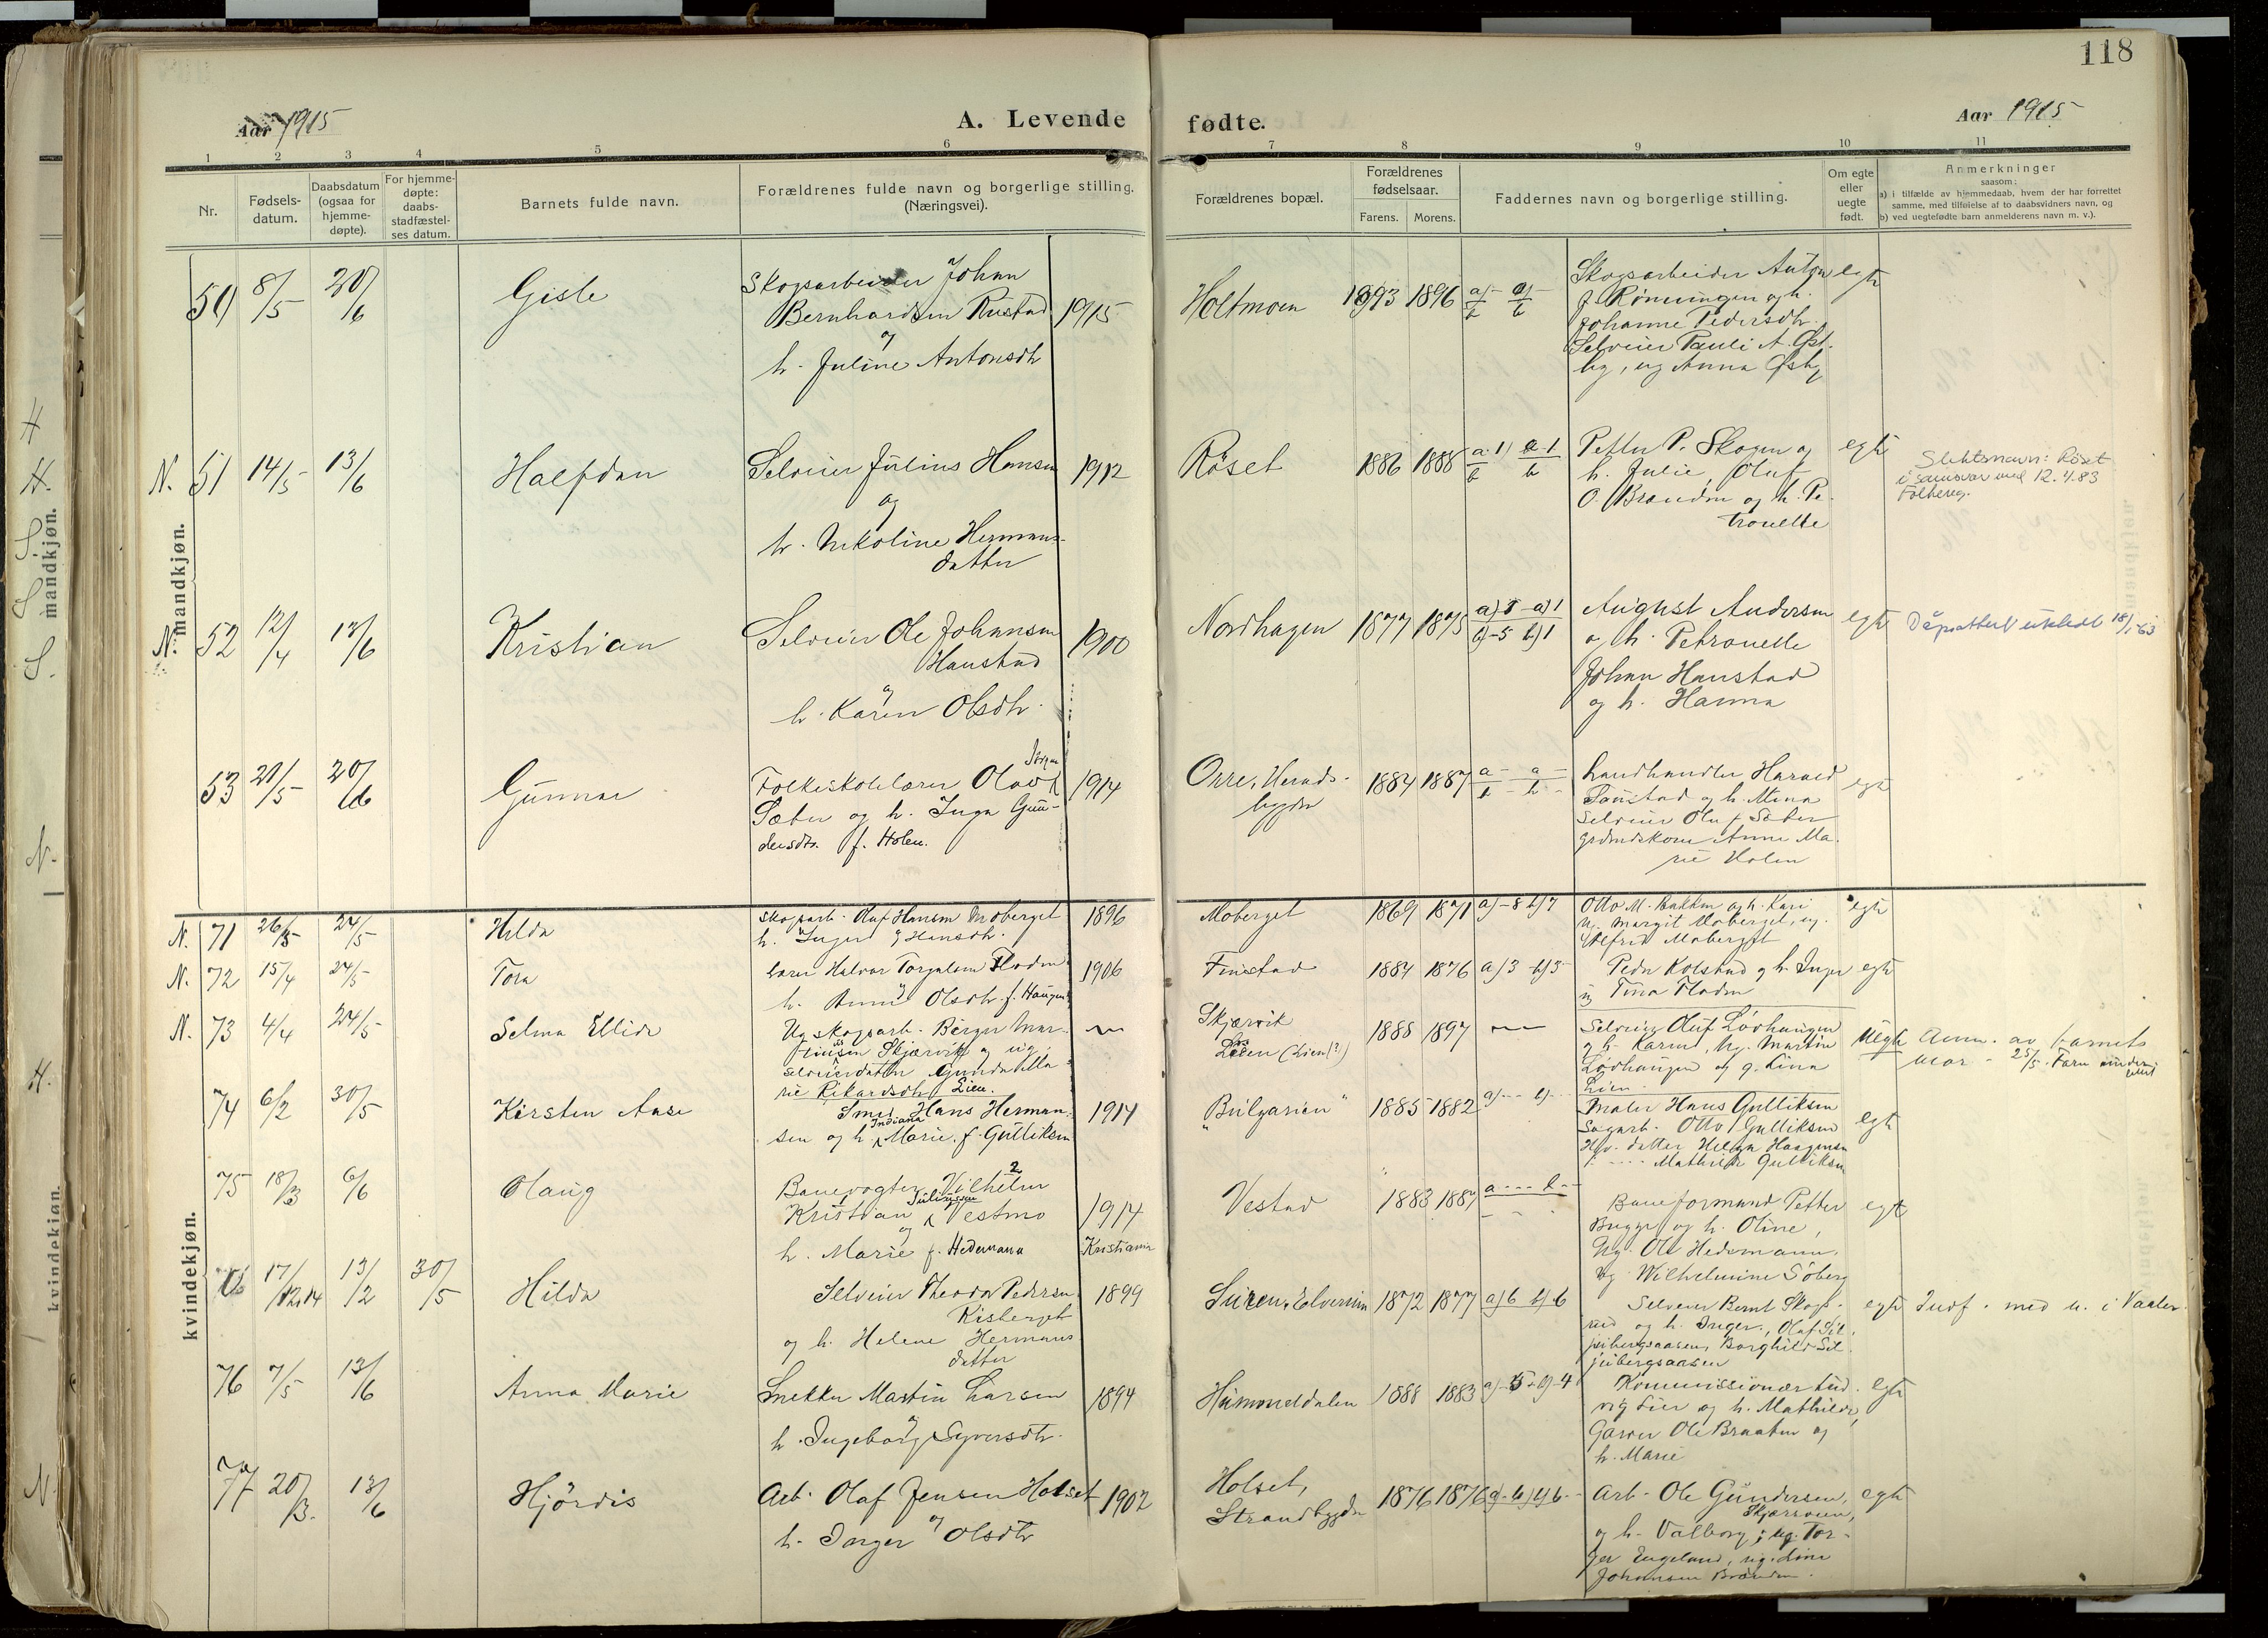 118
Aar 1915
A. Levende fødte.
Aar 1915
1 2 3 4 5 6 7 8 9 10 11
Nr.
Fødsels-
datum.
Daabsdatum
(ogsaa for
hjemme-
døpte).
For hjemme-
døpte:
daabs-
stadfæstel-
ses datum.
Barnets fulde navn.
Forældrenes fulde navn og borgerlige stilling.
(Næringsvei).
Forældrenes bopæl.
Forældrenes
fødselsaar.
Farens. Morens.
Faddernes navn og borgerlige stilling.
Om egte
eller
uegte
født.
Anmerkninger
saasom:
a) i tilfælde av hjemmedaab, hvem der har forrettet
samme, med tilføielse af to daabsvidners navn, og
b) ved uegtefødte barn anmelderens navn m. v.).
mandkjøn.
50 8/5 20/6 Gisle
Skogsarbeider Johan
Bernhardsen Rustad 1915
og
h. Juline Antonsdtr
Holtmoen 1893 1896
Skogsarbeider Anton
J. Rønningen og h.
Johanne Pedersdtr.
Selveier Pauli A. Øst-
by, ug Anna Østby
egte
N. 51 14/5 13/6 Halfdan
Selveier Julius Hansen 1912
og
h. Nikoline Hermans-
datter
Røset 1886 1888 a-1 a-1
Petter P. Skogen og
h. Julie, Oluf
O. Brænden og h. Pe-
tronelle
egte
Slektsnavn: Røset
i samsvar med 12.4.83
Folkereg.
N. 52 12/4 13/6 Kristian
Selveier Ole Johansen
Hanstad 1900
og
h. Karen Olsdtr.
Nordhagen 1877 1875
August Andersen
og h. Petronelle
Johan Hanstad
og h. Hanna
egte
Dåpsattest utstedt 18/1-63
53 21/5 20/6 Gunnar
Folkeskolelærer Olaf 1914
Sæter og h. Inga Gun-
densdtr. f. Holen.
Orre, Herads-
bygden
1884 1887
Landhandler Harald
Sanstad og h. Mina
Selveier Oluf Sæter
grdmdskone Anne Ma-
rie Holen
egte
kvindekjøn.
N. 71 26/3 24/5 Hilda
Skogsarb. Oluf Hansen Moberget 1896
h. Inger Hansdtr.
Moberget 1869 1871 a)-8 b)7
Otto M. Bakken og h. Kari
ug. Margit Moberget, ug.
Alfred Moberget
egte
N. 72 15/4 24/5 Tora
Lærer Halvor Torgalsen Floden 1906
h. Anne Olsdtr. f. Haugen
Finstad 1884 1876 a)3 b)3
Peder Kolstad og h. Inger
ug Tina Floden
egte
N. 73 4/4 24/5 Selma Ellida
Ug skogsarb. Birger Mar-
tinsen Skjærvik og ug.
selveierdatter Gunda Ma-
rie Rikardsdtr Lien.
Skjærvik
Lien (Lien(?)
1888 1897
Selveier Oluf Lövhaugen
og h. Karen, ug. Martin
Lövhaugen og g. Lina
Lien.
Uegte
Anm. av barnets
mor - 25/5. Faren underrettet
74 6/2 30/5 Kirsten Aase
Smed Hans Herman-
sen og h. Indiana Marie f. Gulliksen 1914
"Bulgarien" 1885 1882
Maler Hans Gulliksen
Sagarb. Otto Gulliksen
Helga Haagensen
Mathilde Gulliksen
egte
75 18/3 6/6 Olaug
Banevogter Vilhelm
Kristian Juliussen Vestmo 1914
og
h. Marie f. Hedemann Kristiania
Vestad 1883 1887
Baneformand Petter
Brygge og h. Oline,
Ug. Ole Hedemann,
Ug. Wilhelmine Söberg
egte
17/12.14 13/2 30/5 Hilda
Selveier Theodor Pedersen 1899
Kisberget
og h. Helene Hermans
datter
Elverum 1872 1877 a)6 b)6
Selveier Bernt Skog-
og h. Inger, Olaf Sil-
juibergsaasen, Borghild Sil-
juibergsaasen
egte
Indf. med u. i Vaaler.
76 7/5 13/6 Anna Marie
Snekker Martin Larsen 1894
og
h. Ingeborg Syversdtr.
Hummeldalen 1888 1883
Kommissionær Lud-
vig Lier og h. Mathilde,
Garver Ole Braaten og
h. Marie
egte
77 20/3. 13/6 Hjördis
Arb. Olaf Jensen Holset 1902
og
h. Inger Olsdtr
Holset,
Strandbygden
1876 1876
Arb. Ole Gundersen,
og h. Valborg, ug. Tor-
ger Engeland, ug. Line
Johansen Brænden.
egte